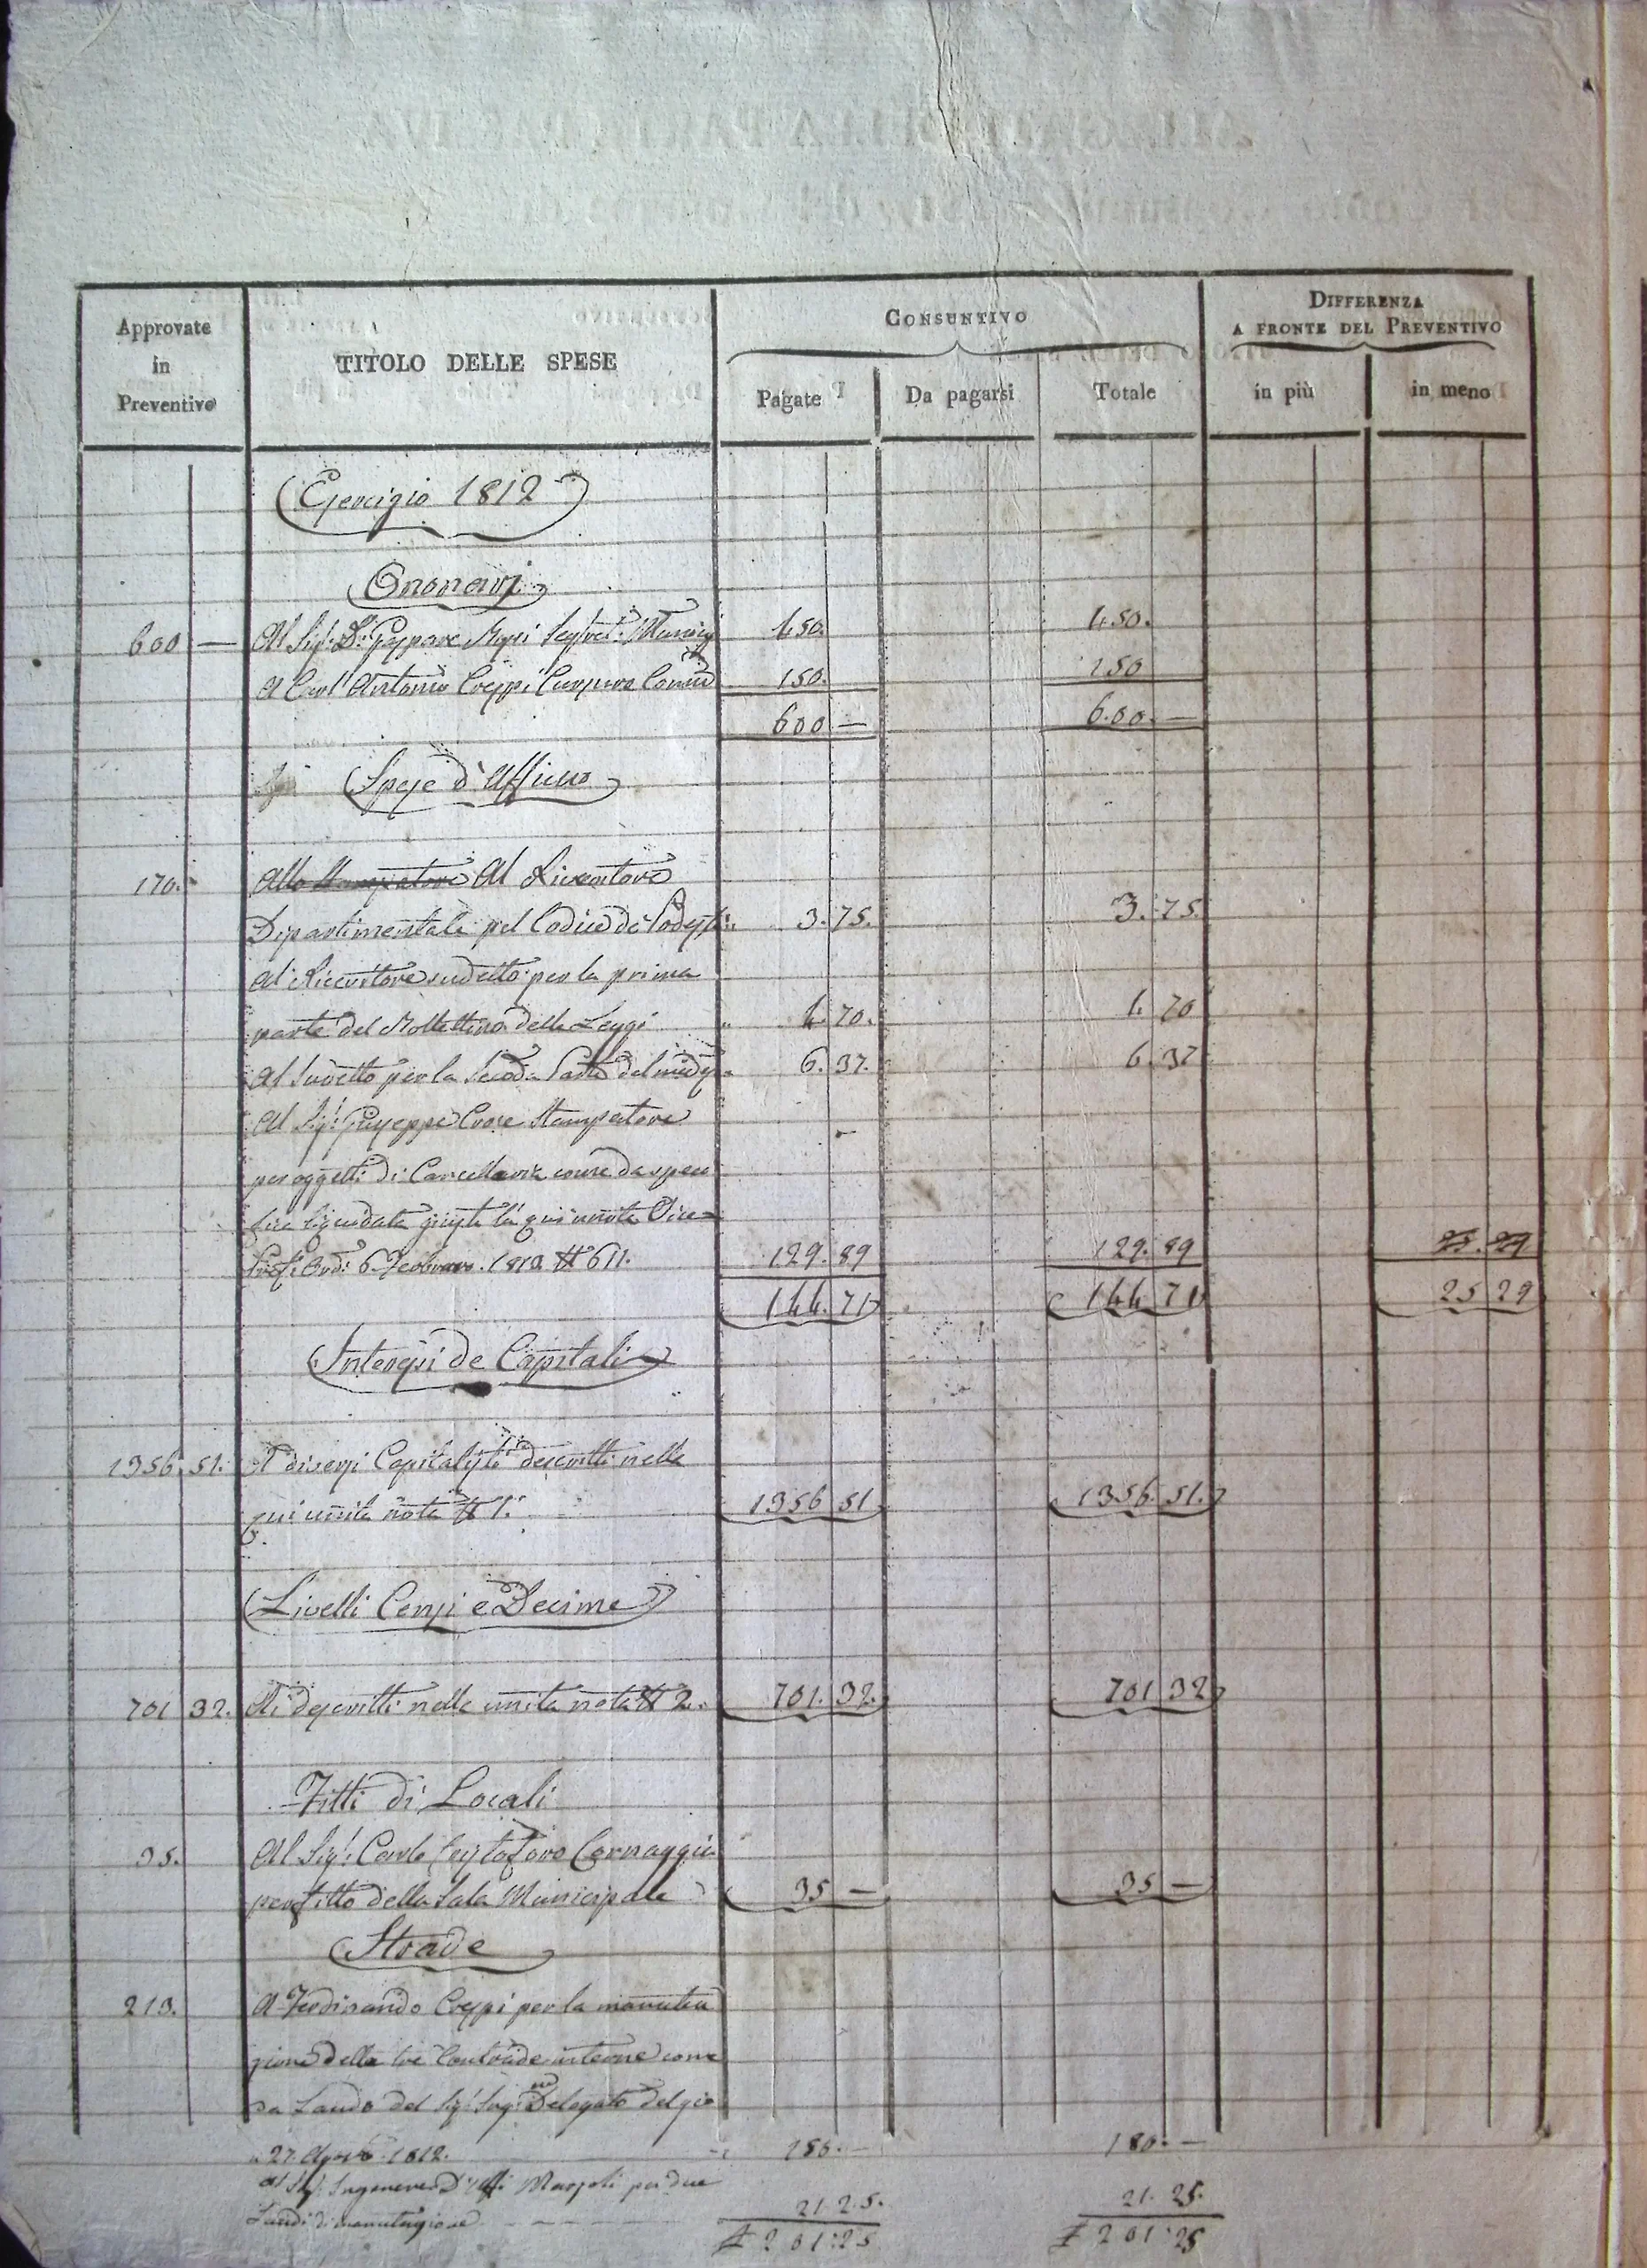 Approvate in Preventivo
TITOLO DELLE SPESE
CONSUNTIVO
Pagate
Da pagarsi
Totale
DIFFERENZA
A FRONTE DEL PREVENTIVO
in più
in meno
Esercizio 1812
Onorarj
600 — Al Sig. Dr. Gaspare Segret. Munic 450. 450.
A Carl' Antonio Crespi Cursore 150. 150
600 — 600. —
Spese d'Ufficio
170. Allo Stampatore Al Ricevitore
Dipartimentale pel Codice de 3. 75. 3. 75
Al Ricevitore sudetto per la prima
parte del Bollettino delle Leggi 4. 70. 4. 70
Al Sudetto per la Seconda Parte del 6. 37. 6. 37
Al Sig. Giuseppe Stampatore
per oggetti di Cancelleria come da
liquidata giusta la qui unita
6 Febbraro 1813 N 611. 129. 89 129. 89 25. 29
144. 71 144 71 25 29
Interessi de Capitali
1356. 51. A diversi Capitalisti descritti nella
qui unita nota N 1. 1356 51 1356. 51.
Livelli Censi e Decime
701 32. Ai descritti nella unita nota N 2. 701. 32. 701 32
Fitti di Locali
35. Al Sig. Carlo Cristoforo Cornaggia
per fitto della Sala Municipale 35 — 35 —
Strade
213. A Ferdinando Crespi per la manuten
zione delle tre Contrade interne come
da Laudo del Sig. Ing. Delegato del gio
27. 1812. 180. — 180. —
al Sig. Ingenere per due
Laudi di manutenzione 21. 25. 21. 25.
201:25 201:25